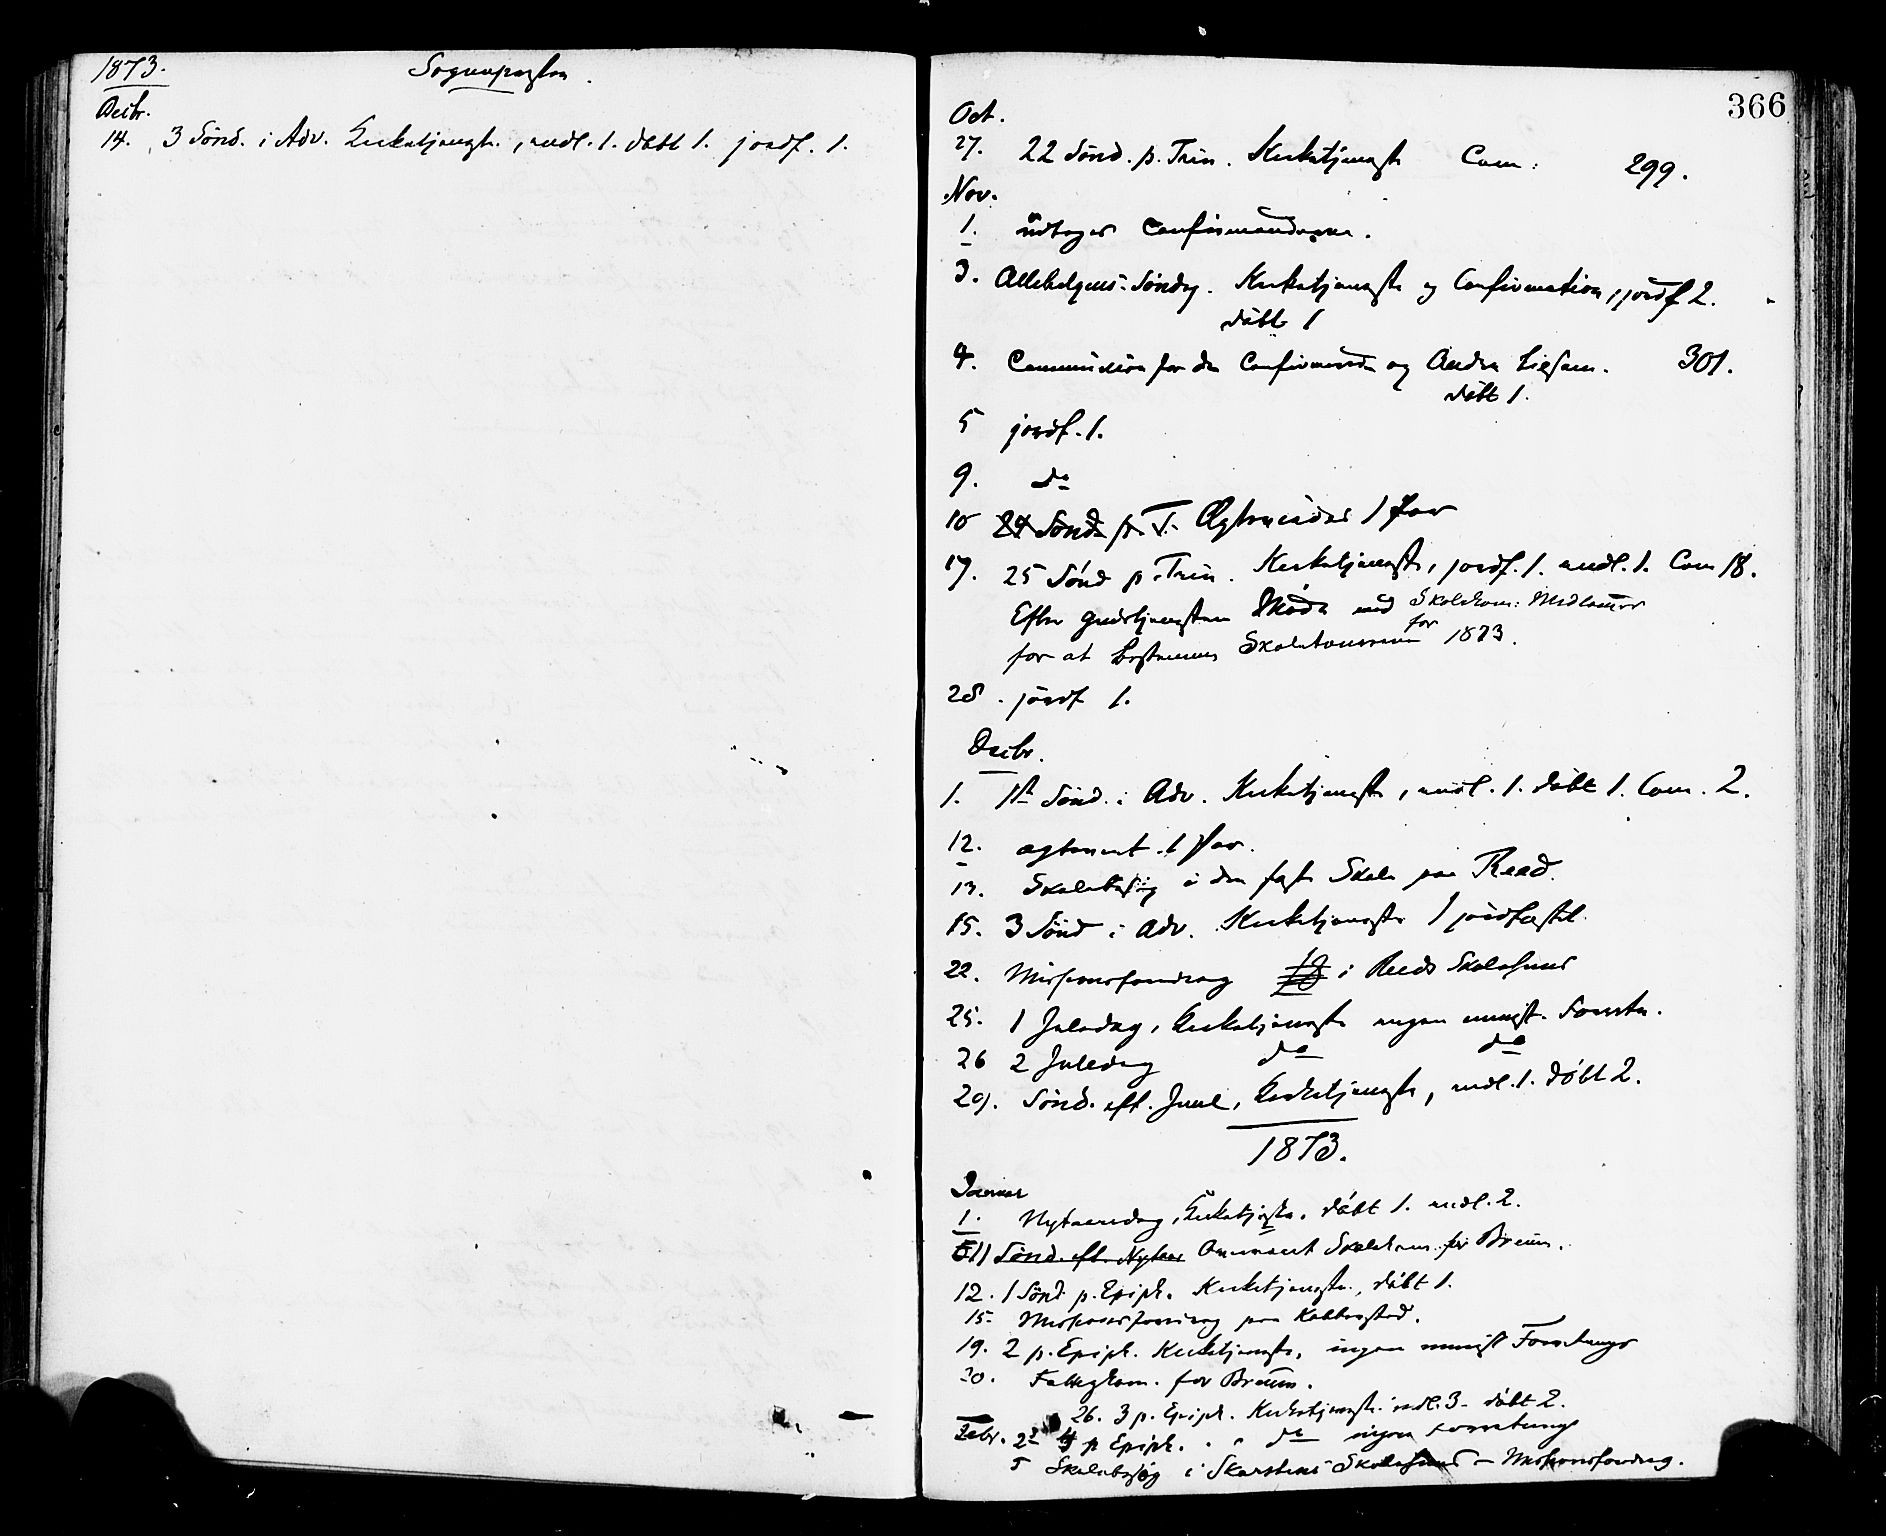 1873. Sognepresten.
Decbr.
14. 3 Sönd. i Adv. Kirketjeneste, indl. 1. döbt 1. jordf. 1.
366
Oct.
27. 22 Sönd. p. Trin. Kirketjeneste Com: 299.
Nov.
1. udtages Confirmanderne.
3. Allehelgens-Söndag. Kirketjeneste og Confirmation, jordf 2.
döbt 1
4. Communion for de Confirmerede og Andre Ligesom. 301.
döbt 1.
5 jordf. 1.
9. do
10 24 Sönd. p. T. Ægtevies 1 Par
17. 25 Sönd p. Trin. Kirketjeneste, jordf. 1. indl. 1. Com 18.
Efter Gudstjenesten Möde med Skolekom: Medlemmer
for at bestemme Skoletouren for 1873.
28. jordf 1.
Decbr.
1. 1ste Sönd. i Adv. Kirketjeneste, indl. 1. döbt 1. Com. 2.
12. ægteviet 1 Par.
13. Skolebesög i den faste Skole paa Reed.
15. 3 Sönd i Adv. Kirketjeneste 1 jordfæstet.
22. Missionsforedrag i Reeds Skolehuus
25. 1 Juledag, Kirketjeneste ingen minist. Forretn.
26 2 Juledag do do
29. Sönd. eft. Juul, Kirketjeneste, indl. 1. döbt 2.
1873.
Januar
1. Nytaarsdag, Kirketjeste. döbt 1. indl. 2.
11 Sönd. eft. Nytaar Skolekom. for Breim.
12. 1 Sönd p. Epiph. Kirketjeneste, döbt 1.
15. Missionsforedrag paa
19. 2 p. Epiph. Kirketjeneste, ingen minist Forretninger
20. Fattigkom. for Breim.
26. 3 p. Epiph. Kirketjeneste. indl. 3 - döbt 2.
Febr. 2 4 p Epiph. do ingen Forretning
5 Skolebesög i Skarstens Skolehuus - Missionsforedrag.